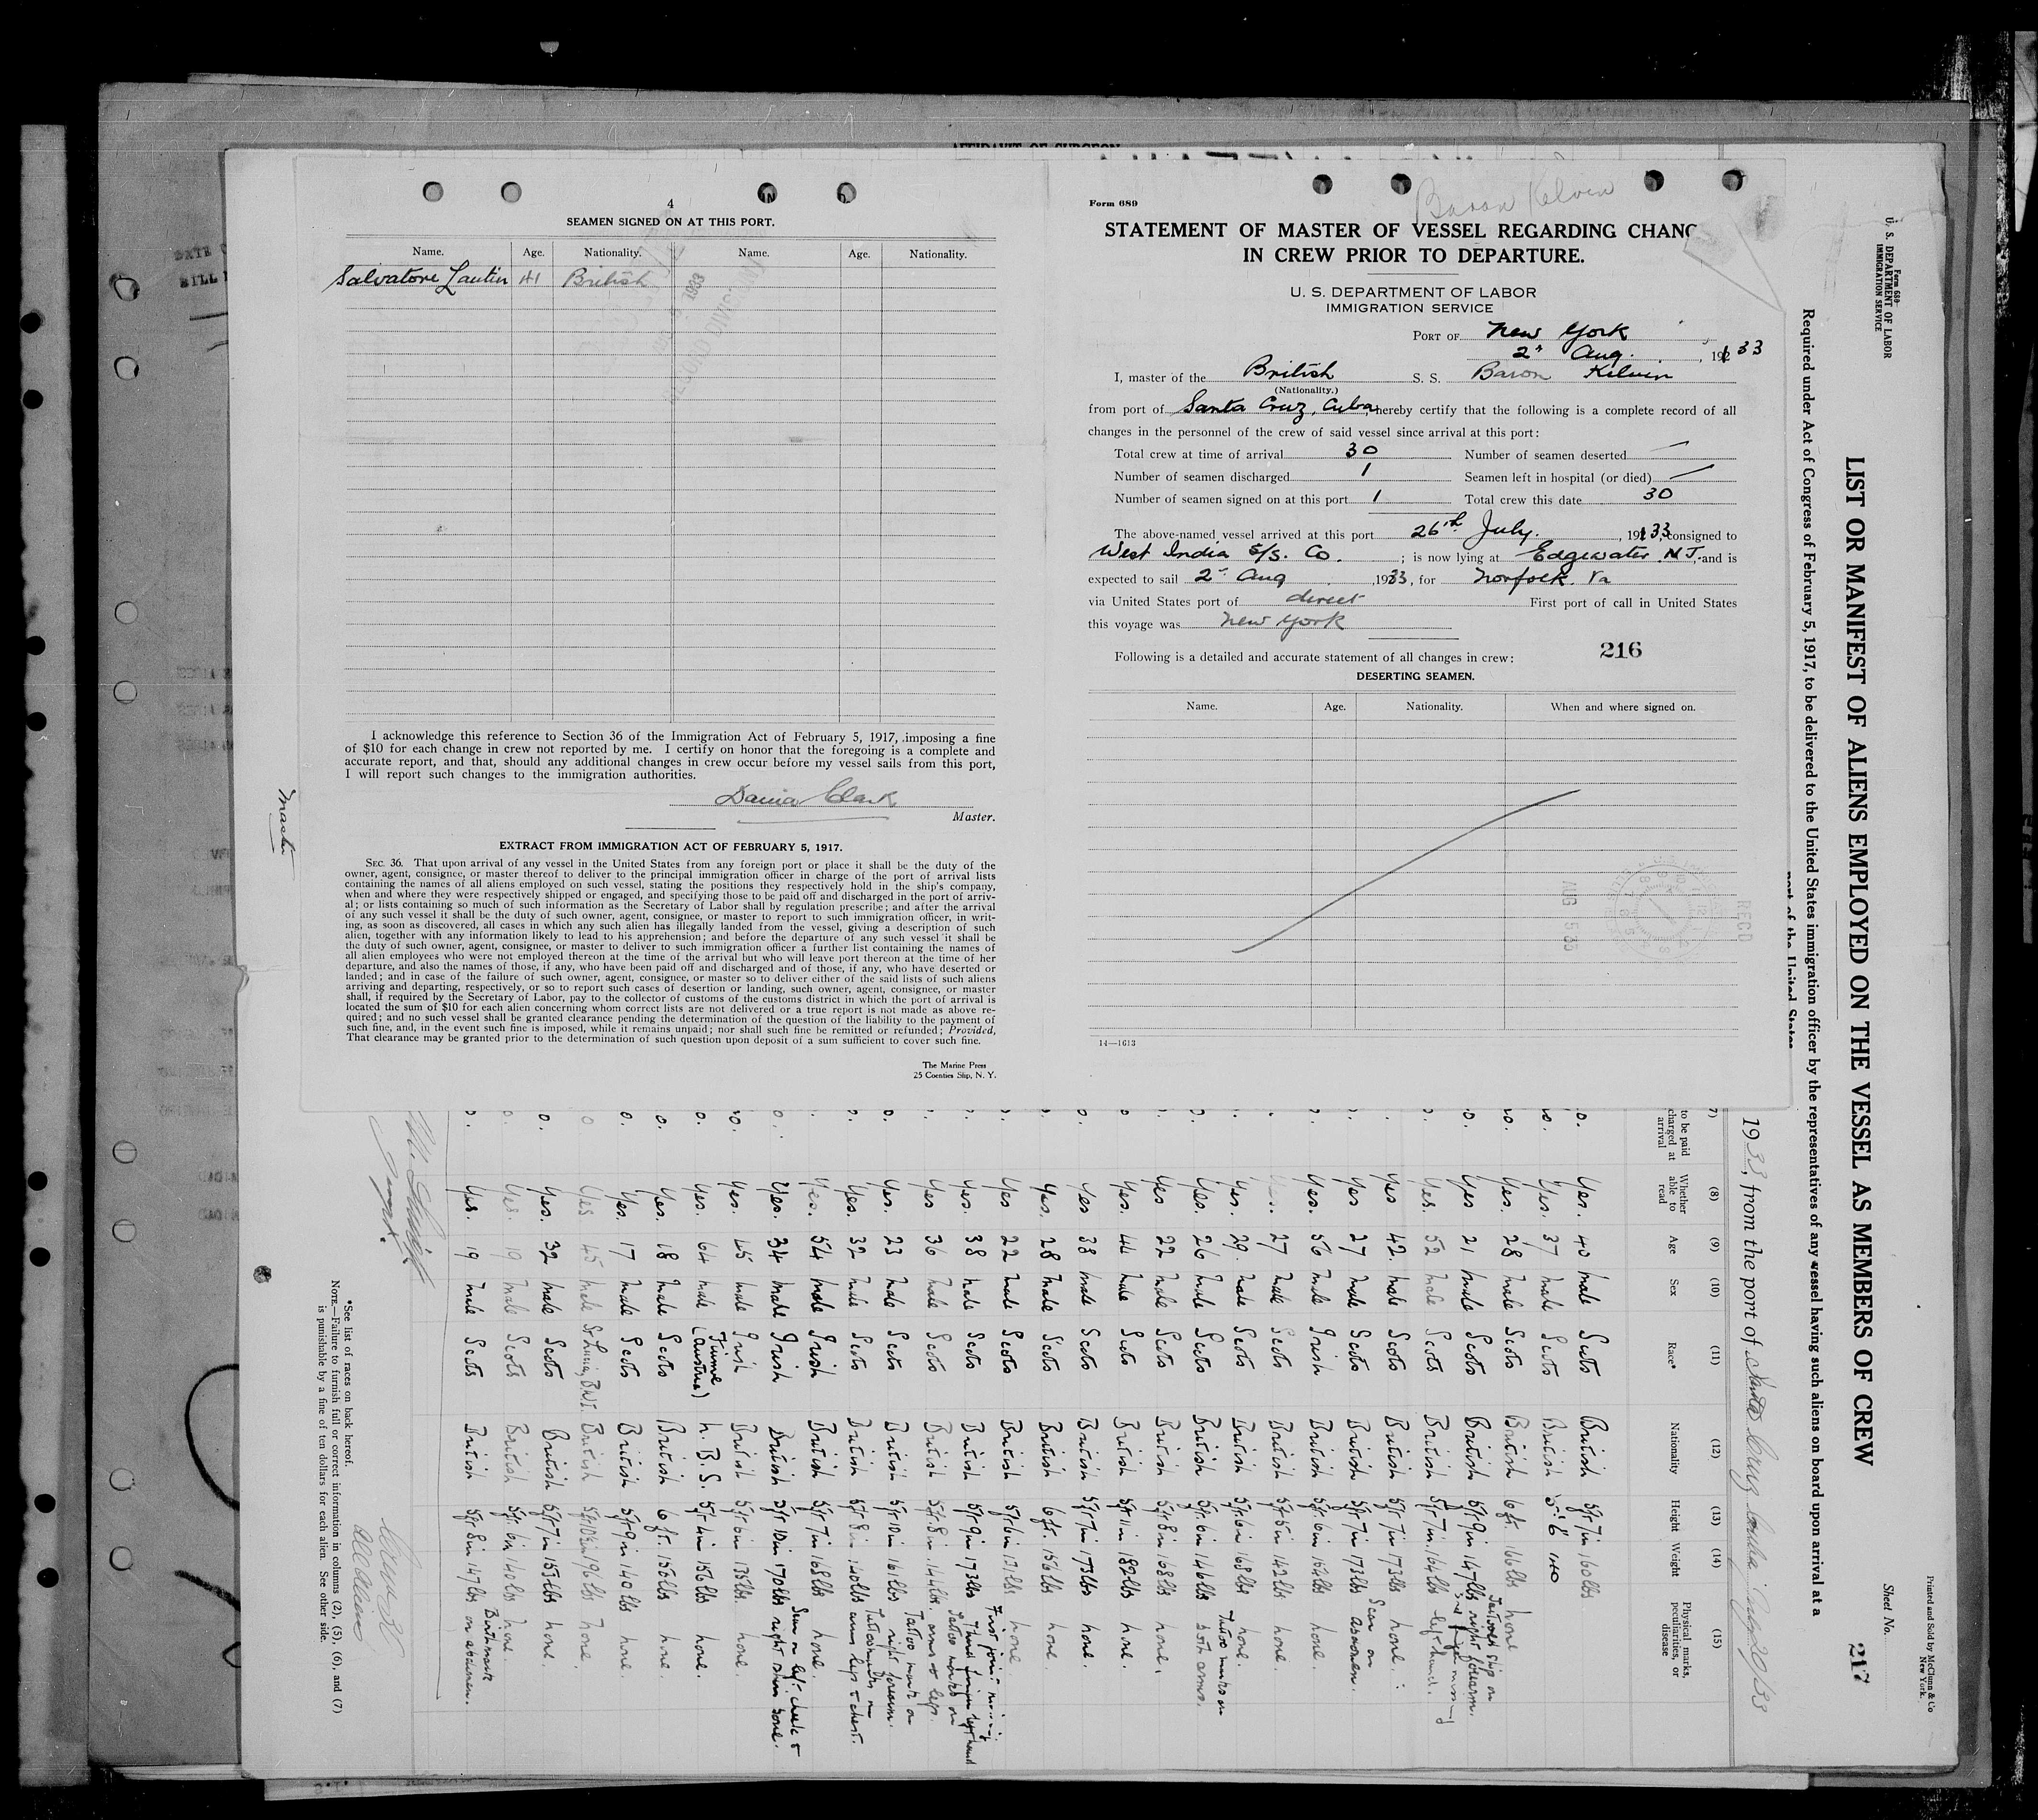 4
SEAMEN SIGNED ON AT THIS PORT.
Name. Age. Nationality. Name. Age. Nationality.
Salvatore 41 British
I acknowledge this reference to Section 36 of the Immigration Act of February 5, 1917, imposing a fine
of $10 for each change in crew not reported by me. I certify on honor that the foregoing is a complete and
accurate report, and that, should any additional changes in crew occur before my vessel sails from this port,
I will report such changes to the immigration authorities.
Clark
Master.
EXTRACT FROM IMMIGRATION ACT OF FEBRUARY 5, 1917.
SEC. 36. That upon arrival of any vessel in the United States from any foreign port or place it shall be the duty of the
owner, agent, consignee, or master thereof to deliver to the principal immigration officer in charge of the port of arrival lists
containing the names of all aliens employed on such vessel, stating the positions they respectively hold in the ship's company,
when and where they were respectively shipped or engaged, and specifying those to be paid off and discharged in the port of arriv-
al; or lists containing so much of such information as the Secretary of Labor shall by regulation prescribe; and after the arrival
of any such vessel it shall be the duty of such owner, agent, consignee, or master to report to such immigration officer, in writ-
ing, as soon as discovered, all cases in which any such alien has illegally landed from the vessel, giving a description of such
alien, together with any information likely to lead to his apprehension; and before the departure of any such vessel it shall be
the duty of such owner, agent, consignee, or master to deliver to such immigration officer a further list containing the names of
all alien employees who were not employed thereon at the time of the arrival but who will leave port thereon at the time of her
departure, and also the names of those, if any, who have been paid off and discharged and of those, if any, who have deserted or
landed; and in case of the failure of such owner, agent, consignee, or master so to deliver either of the said lists of such aliens
arriving and departing, respectively, or so to report such cases of desertion or landing, such owner, agent, consignee, or master
shall, if required by the Secretary of Labor, pay to the collector of customs of the customs district in which the port of arrival is
located the sum of $10 for each alien concerning whom correct lists are not delivered or a true report is not made as above re-
quired; and no such vessel shall be granted clearance pending the determination of the question of the liability to the payment of
such fine, and, in the event such fine is imposed, while it remains unpaid; nor shall such fine be remitted or refunded; Provided,
That clearance may be granted prior to the determination of such question upon deposit of a sum sufficient to cover such fine.
The Marine Press
25 Coenties Slip, N. Y.
Master
Baron Kelvin
Form 689
STATEMENT OF MASTER OF VESSEL REGARDING CHANG
IN CREW PRIOR TO DEPARTURE.
U. S. DEPARTMENT OF LABOR
IMMIGRATION SERVICE
PORT OF New York
2" Aug. , 1933
I, master of the British S. S. Baron Kelvin
(Nationality.)
from port of Santa Cruz, Cuba hereby certify that the following is a complete record of all
changes in the personnel of the crew of said vessel since arrival at this port:
Total crew at time of arrival 30 Number of seamen deserted —
Number of seamen discharged 1 Seamen left in hospital (or died) —
Number of seamen signed on at this port 1 Total crew this date 30
The above-named vessel arrived at this port 26th July. , 1933 consigned to
West India S/S. Co. ; is now lying at Edgewater N.J. and is
expected to sail 2" Aug , 1933, for Norfolk Va
via United States port of direct First port of call in United States
this voyage was New York
Following is a detailed and accurate statement of all changes in crew: 216
DESERTING SEAMEN.
Name. Age. Nationality. When and where signed on.
RECD
AUG 5 33
14—1613
Form 689
U. S. DEPARTMENT OF LABOR
IMMIGRATION SERVICE
LIST OR MANIFEST OF ALIENS EMPLOYED ON THE VESSEL AS MEMBERS OF CREW
Required under Act of Congress of February 5, 1917, to be delivered to the United States immigration officer by the representatives of any vessel having such aliens on board upon arrival at a
port of the United States
Sheet No. 217
Printed and Sold by McClunn & Co
New York.
1933, from the port of Santa Cruz Cuba
(8) (9) (10) (11) (12) (13) (14) (15)
to be paid charged at arrival Whether able to read Age Sex Race* Nationality Height Weight Physical marks, peculiarities, or disease
Yes. 40 male Scots British 5ft 7in 160lbs
Yes. 37 male Scots British 5.6 140
Yes. 28 male Scots British 6ft. 166lbs none
Yes 21 male Scots British 5ft 9in 147lbs Tattoed ship on right forearm.
Yes. 52 male Scots British 5ft 7in 164lbs left hand.
Yes 42 male Scots British 5ft 7in 173lbs none.
Yes 27 male Scots British 5ft 7in 173lbs Scar on abdomen.
Yes. 56 male Irish British 5ft 6in 164lbs none.
Yes. 27 male Scots British 5ft 5in 142lbs none.
Yes. 29. male Scots British 5ft 6in 168lbs none.
Yes. 26 male Scots British 5ft. 6in 146lbs Tattoo marks on both arms.
Yes 22 male Scots British 5ft 8in 168lbs none.
Yes. 44 male Scots British 5ft 11in 182lbs none.
Yes 38 male Scots British 5ft 7in 173lbs none.
Yes. 28 male Scots British 6ft. 156lbs none
Yes 22 male Scots British 5ft 6in 171lbs none.
Yes. 38 male Scots British 5ft 9in 173lbs First joint missing Third finger left hand
Yes 36 male Scots British 5ft 8in 144lbs. Tattoo marks on arms & legs.
Yes. 23 male Scots British 5ft 10in 161lbs Tattoo mark on right forearm.
Yes. 32 male Scots British 5ft 8in 140lbs Tattoo marks on arms legs & chest.
Yes. 54 male Irish British 5ft 7in 168lbs none.
Yes. 34 male Irish British 5ft 10in 170lbs Scar on left cheek & right shin bone.
Yes. 45 male Irish British 5ft 6in 138lbs. none.
Yes. 64 male Fiume (Austria) h. B. S. 5ft 4in 156lbs none.
Yes. 18 male Scots British 6ft. 156lbs none.
Yes. 17 male Scots British 5ft 9in 140lbs none.
Yes 45 male St Lucia, B.W.I. British 196lbs none.
Yes. 32 male Scots British 5ft 7in 153lbs none.
Yes. 19 male Scots British 5ft. 6in 140lbs none.
Yes. 19 male Scots British 5ft 8in 147lbs Birthmark on abdomen.
*See list of races on back hereof.
NOTE.—Failure to furnish full or correct information in columns (2), (5), (6), and (7)
is punishable by a fine of ten dollars for each alien. See other side.